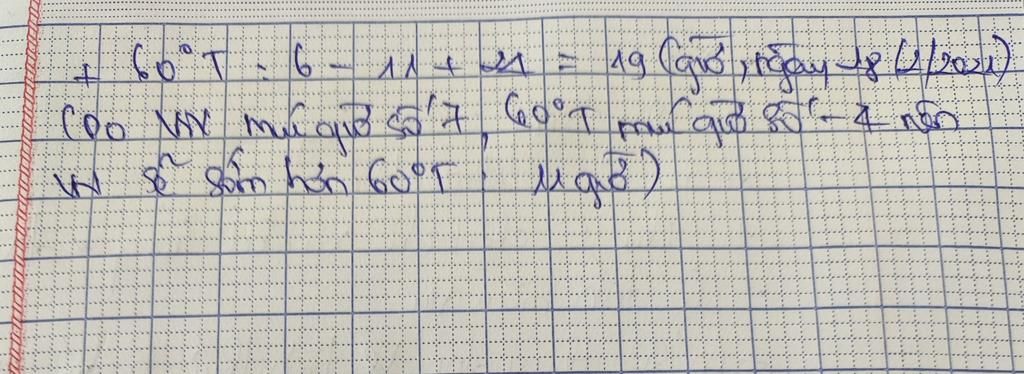 + 60°T : 6 - 11 + 24 = 19 (giờ, ngày 18/2/2021)
(Do VN múi giờ số 7, 60°T múi giờ số -4 nên
VN sẽ sớm hơn 60°T 11 giờ)